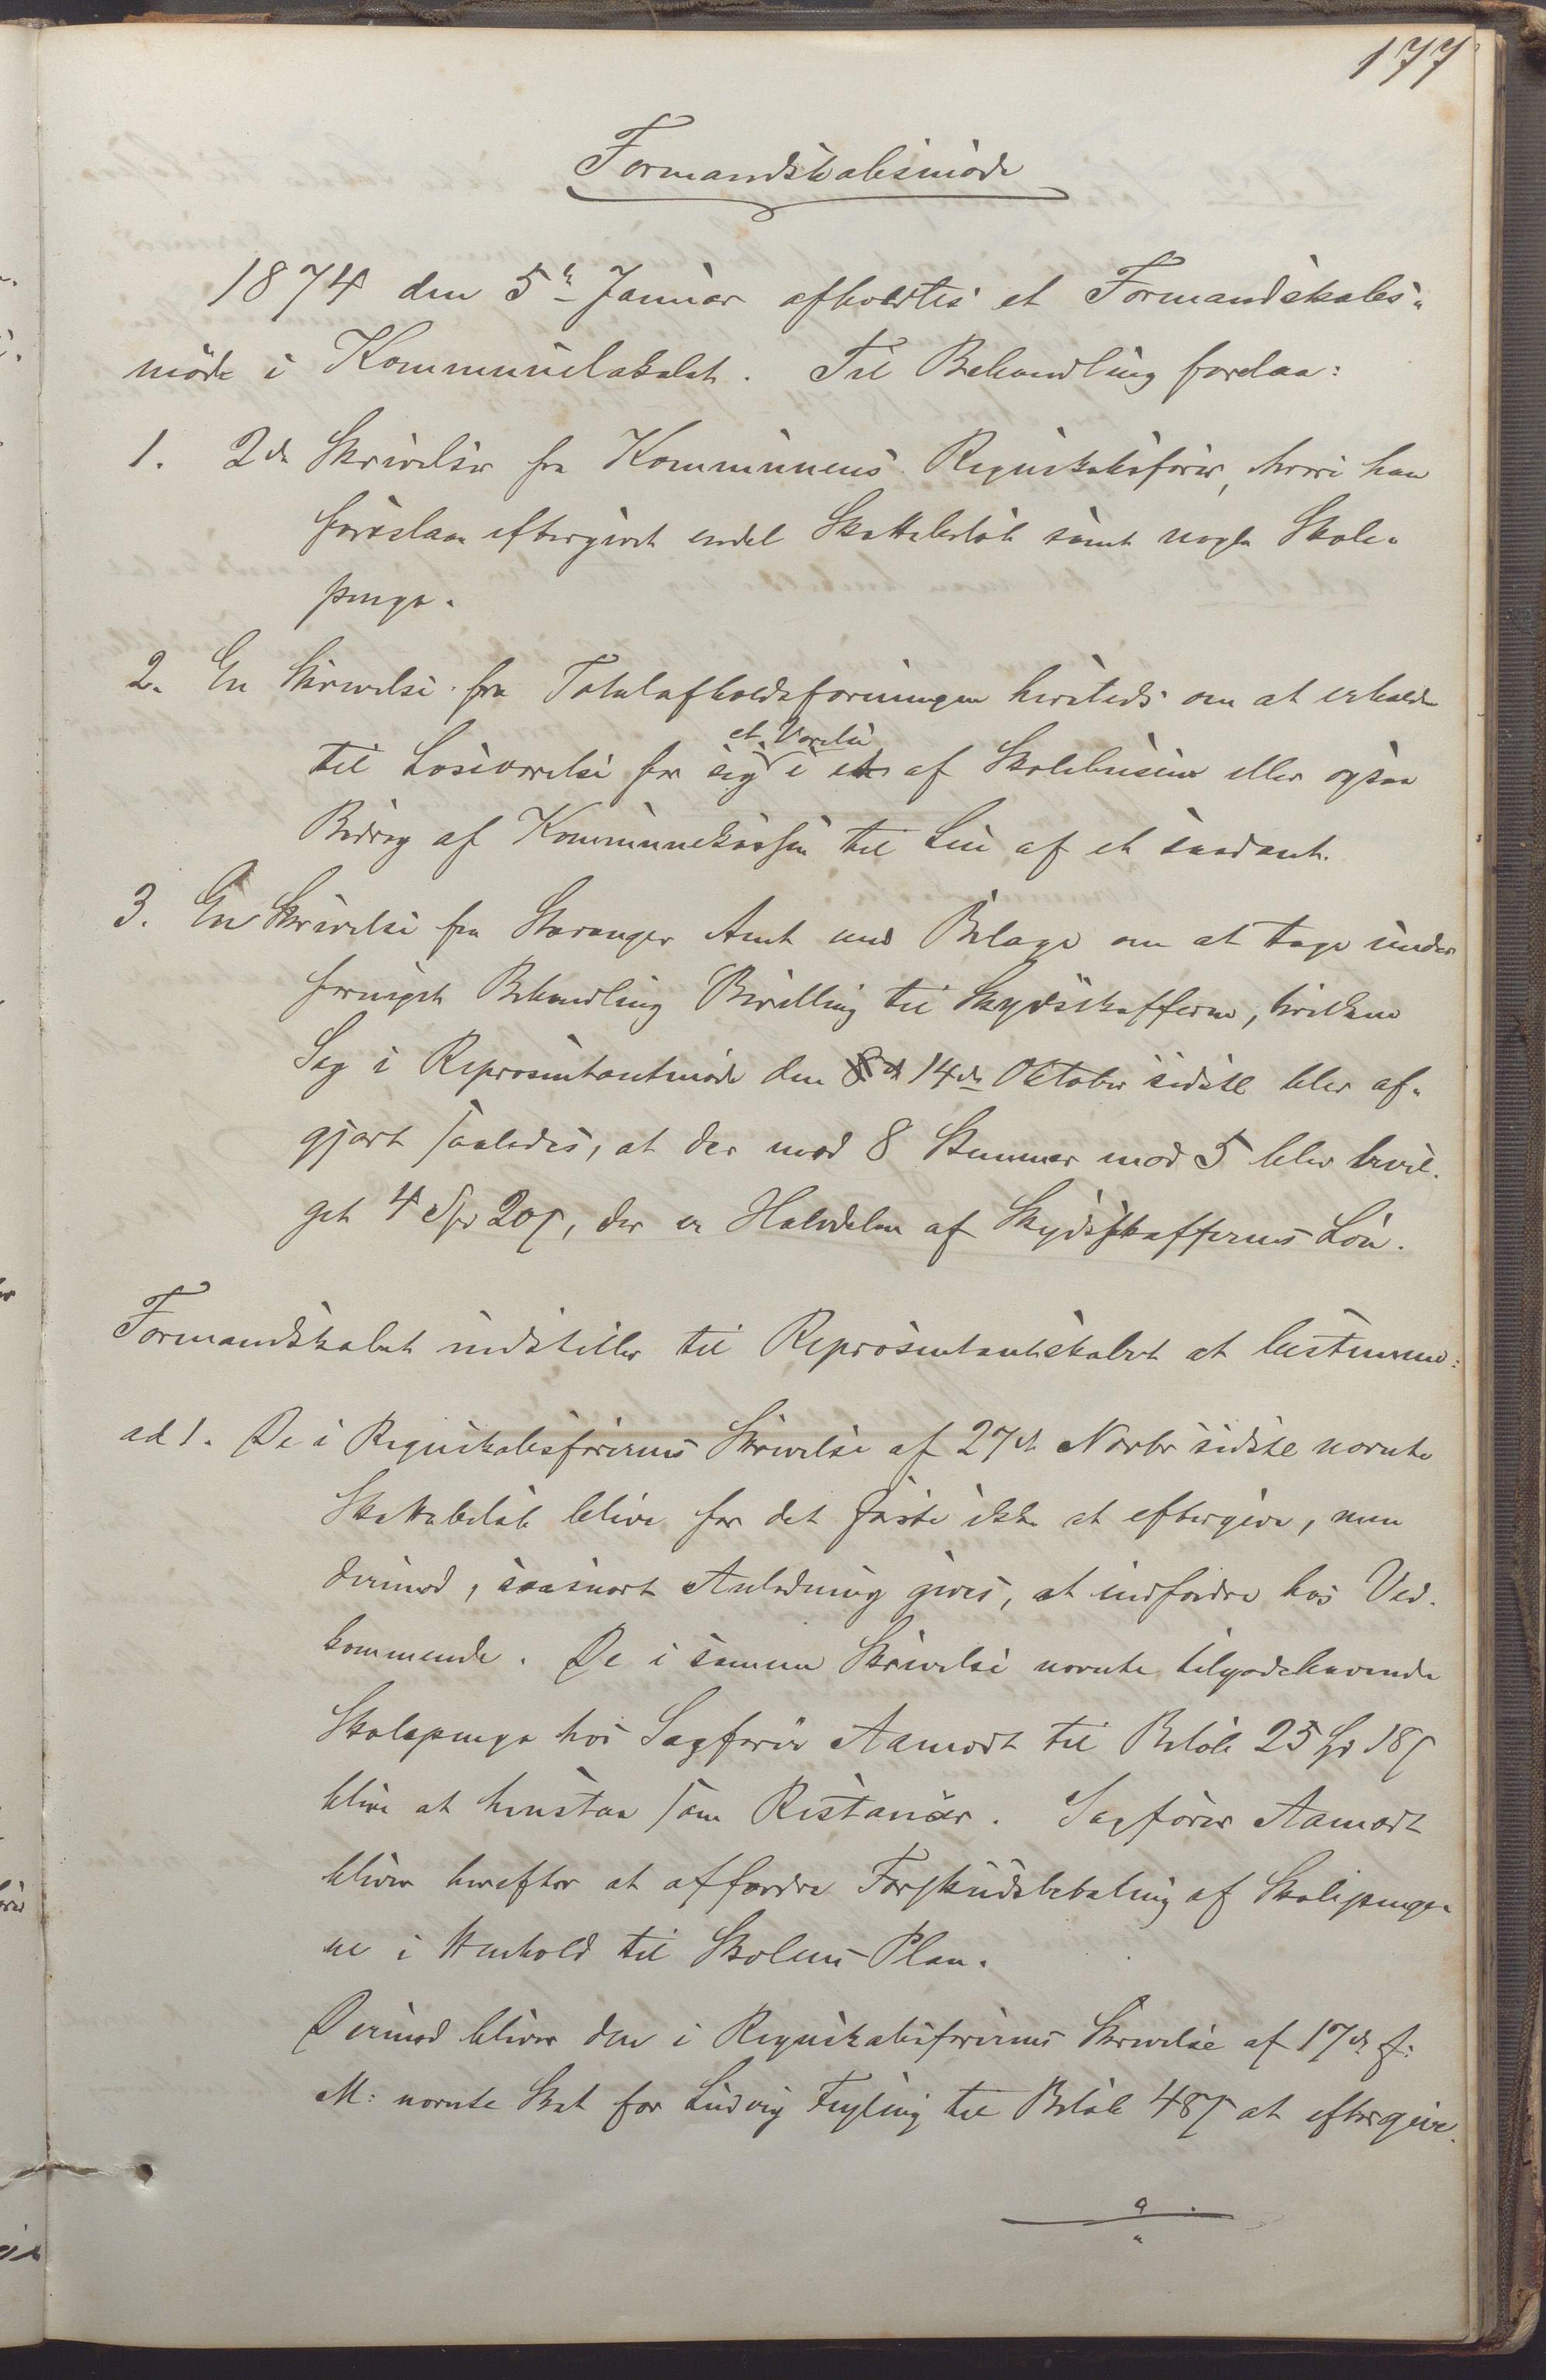 177
Formandskabsmøde
1874 den 5te Januar afholdtes et Formandskabs-
møde i Kommunelokalet. Til Behandling forelaa:
1. 2de Skrivelser fra Kommunens Regnskabsfører, hvori han
foreslaar eftergivet endel Skattebeløb samt nogle Skole-
penge.
2. En Skrivelse fra Totalafholdsforeningen hersteds om at erholde
til Losiværelse for sig et Værelse i et af Skolehusene eller ogsaa
Bidrag af Kommunekassen til Leie af et saadant.
3. En Skrivelse fra Stavanger Amt med Bilage om at tage under
fornyet Behandling Bevilling til Skydsskafferne, hvilken
Sag i Repræsentantmøde den 14de Oktober sidstl blev af-
gjort saaledes, at der mod 8 Stemmer mod 5 blev bevil-
get 4 Spd 20ſ, der er Halvdelen af Skydsskaffernes Løn.
Formandskabet indstiller til Repræsentantskabet at bestemme:
ad 1. De i Regnskabsførerens Skrivelse af 27de Novbr sidstl nævnte
Skattebeløb blive for det første ikke at eftergive, men
derimod, saasnart Anledning gives, at indfordre hos Ved-
kommende. De i samme Skrivelse nævnte tilgodehavende
Skolepenge hos Sagfører Aamodt til Beløb 25 Spd 18ſ
blive at henstaa som Restancer. Sagfører Aamodt
bliver herefter at affordre Forskudsbetaling af Skolepenge-
ne i Henhold til Skolens Plan.
Derimod bliver den i Regnskabsførerens Skrivelse af 17de f:
M: nævnte Skat for Ludvig Fugling til Beløb 48ſ at eftergive.